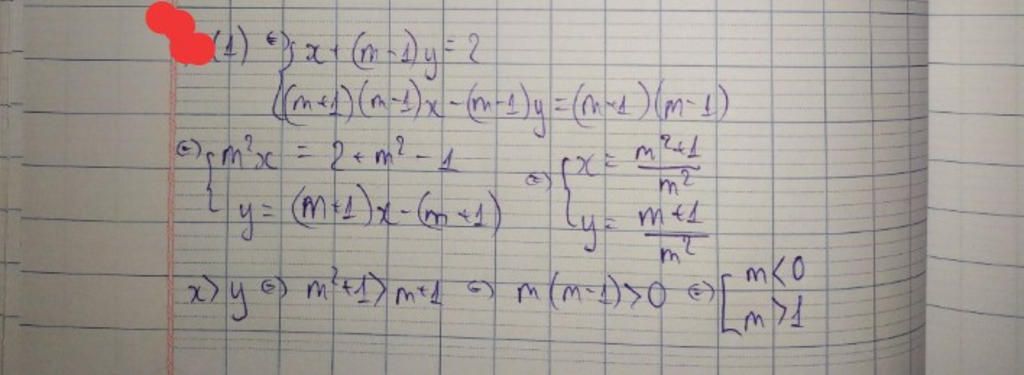 (1) ⇔ { x + (m-1)y = 2
{ (m+1)(m-1)x - (m-1)y = (m+1)(m-1)
⇔ { m²x = 2 + m² - 1 ⇔ { x = (m²+1)/m²
{ y = (m+1)x - (m+1) { y = (m+1)/m²
x > y ⇔ m²+1 > m+1 ⇔ m(m-1) > 0 ⇔ [ m < 0
[ m > 1